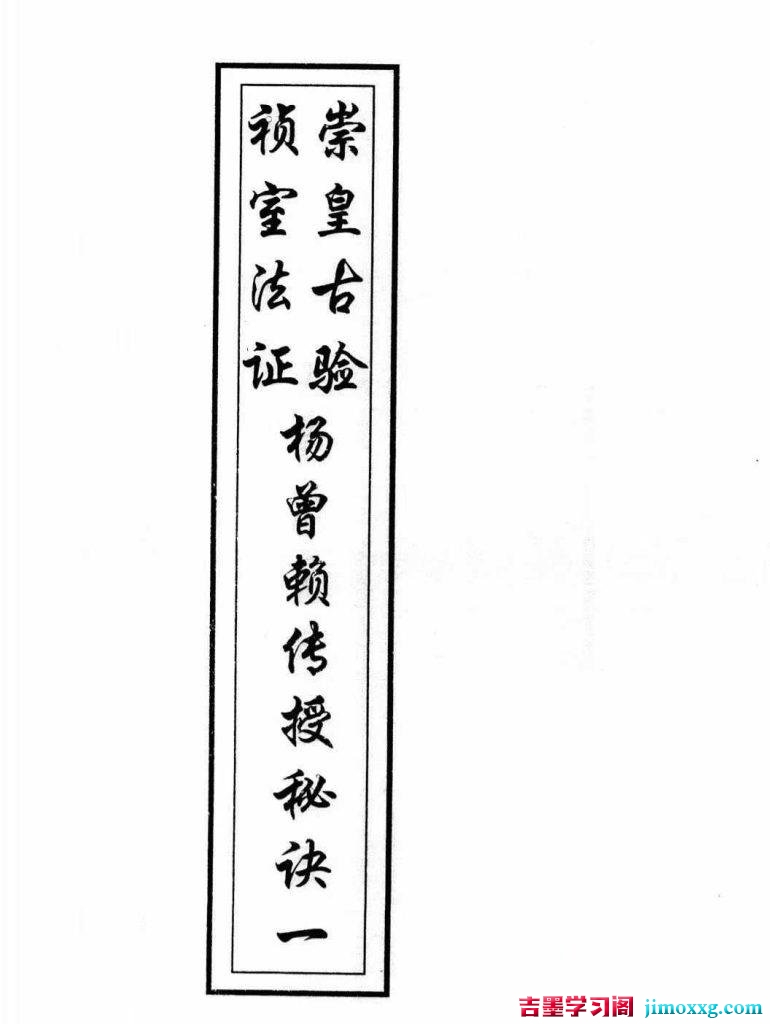 崇皇古验
祯室法证
杨曾赖传授秘诀一
吉墨学习阁 jimoxxg.com